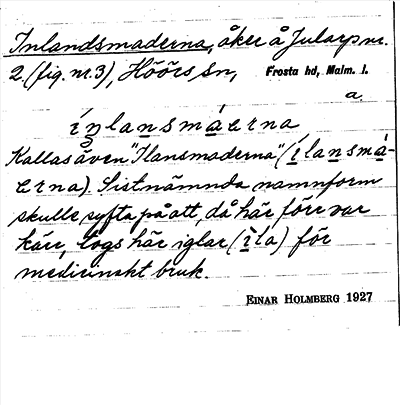 Inlandsmaderna, åker å Jularp nr.
2. (fig. nr. 3), Höörs sn, Frosta hd, Malm. l.
a.
ínlansmáerna
Kallas även "Ilansmaderna" (ílansmá-
erna). Sistnämnda namnform
skulle syfta på att, då här förr var
kärr, togs här iglar (íla) för
medicinskt bruk.
EINAR HOLMBERG 1927